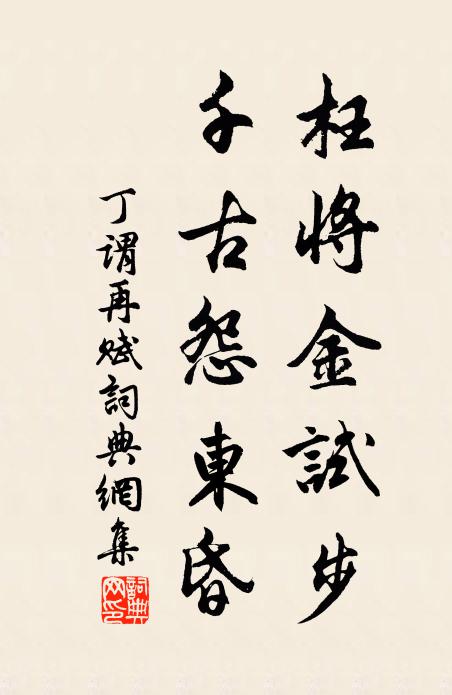 枉將金試步
千古怨東昏
丁謂再賦詞典網集
詞典網印